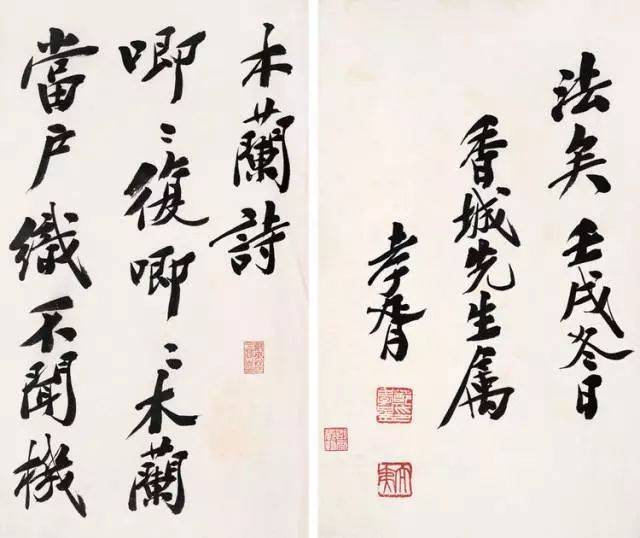 木蘭詩
唧〻復唧〻木蘭
當户織不聞機
法矣壬戌冬日
香城先生属
孝胥